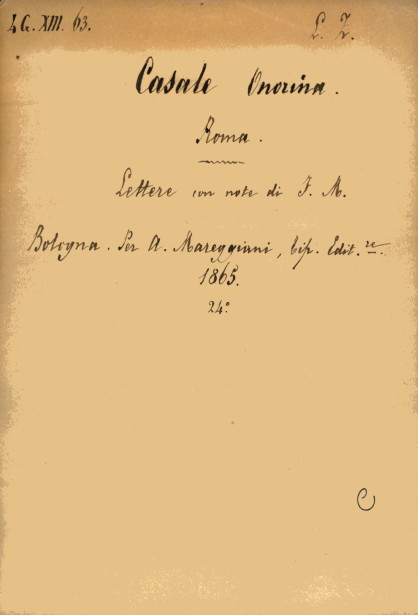 4 G. XIII. 63.
L. Z.
Casale Onorina.
Roma.
Lettere con note di F. M.
Bologna. Per A. Mareggiani, tip. Edit.re.
1865.
24°
C